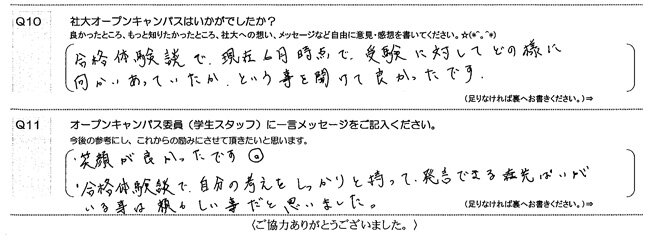 Q10 社大オープンキャンパスはいかがでしたか？
良かったところ、もっと知りたかったところ、社大への想い、メッセージなど自由に意見・感想を書いてください。☆(*^。^*)
合格体験談で、現在6月時点で、受験に対してどの様に
向かいあっていたか、という事を聞けて良かったです。
(足りなければ裏へお書きください。)⇒
Q11 オープンキャンパス委員（学生スタッフ）に一言メッセージをご記入ください。
今後の参考にし、これからの励みにさせて頂きたいと思います。
・笑顔が良かったです◎
・合格体験談で、自分の考えをしっかりと持って、発言できる先ぱいが
いる事は頼もしい事だと思いました。
(足りなければ裏へお書きください。)⇒
〈ご協力ありがとうございました。〉